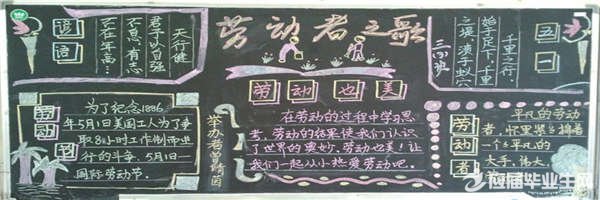 劳动者之歌
语
语
天行健
君子以自强
不息，有志
不在年高……
三(3)班
五一
千里之行，
始于足下；千里
之堤，溃于蚁穴
劳动节
为了纪念1886
年5月1日美国工人为了争
取8小时工作制而进
行的斗争，5月1日—
国际劳动节。
举办者曾倩茵
劳动也美
在劳动的过程中学习思
考，劳动的结果使我们认识
了世界的奥妙，劳动也美！让
我们一起从小热爱劳动吧。
劳动者
平凡的劳动
者，怀里紧紧揣着
一个了平凡的
大手，伟大。
应届毕业生网